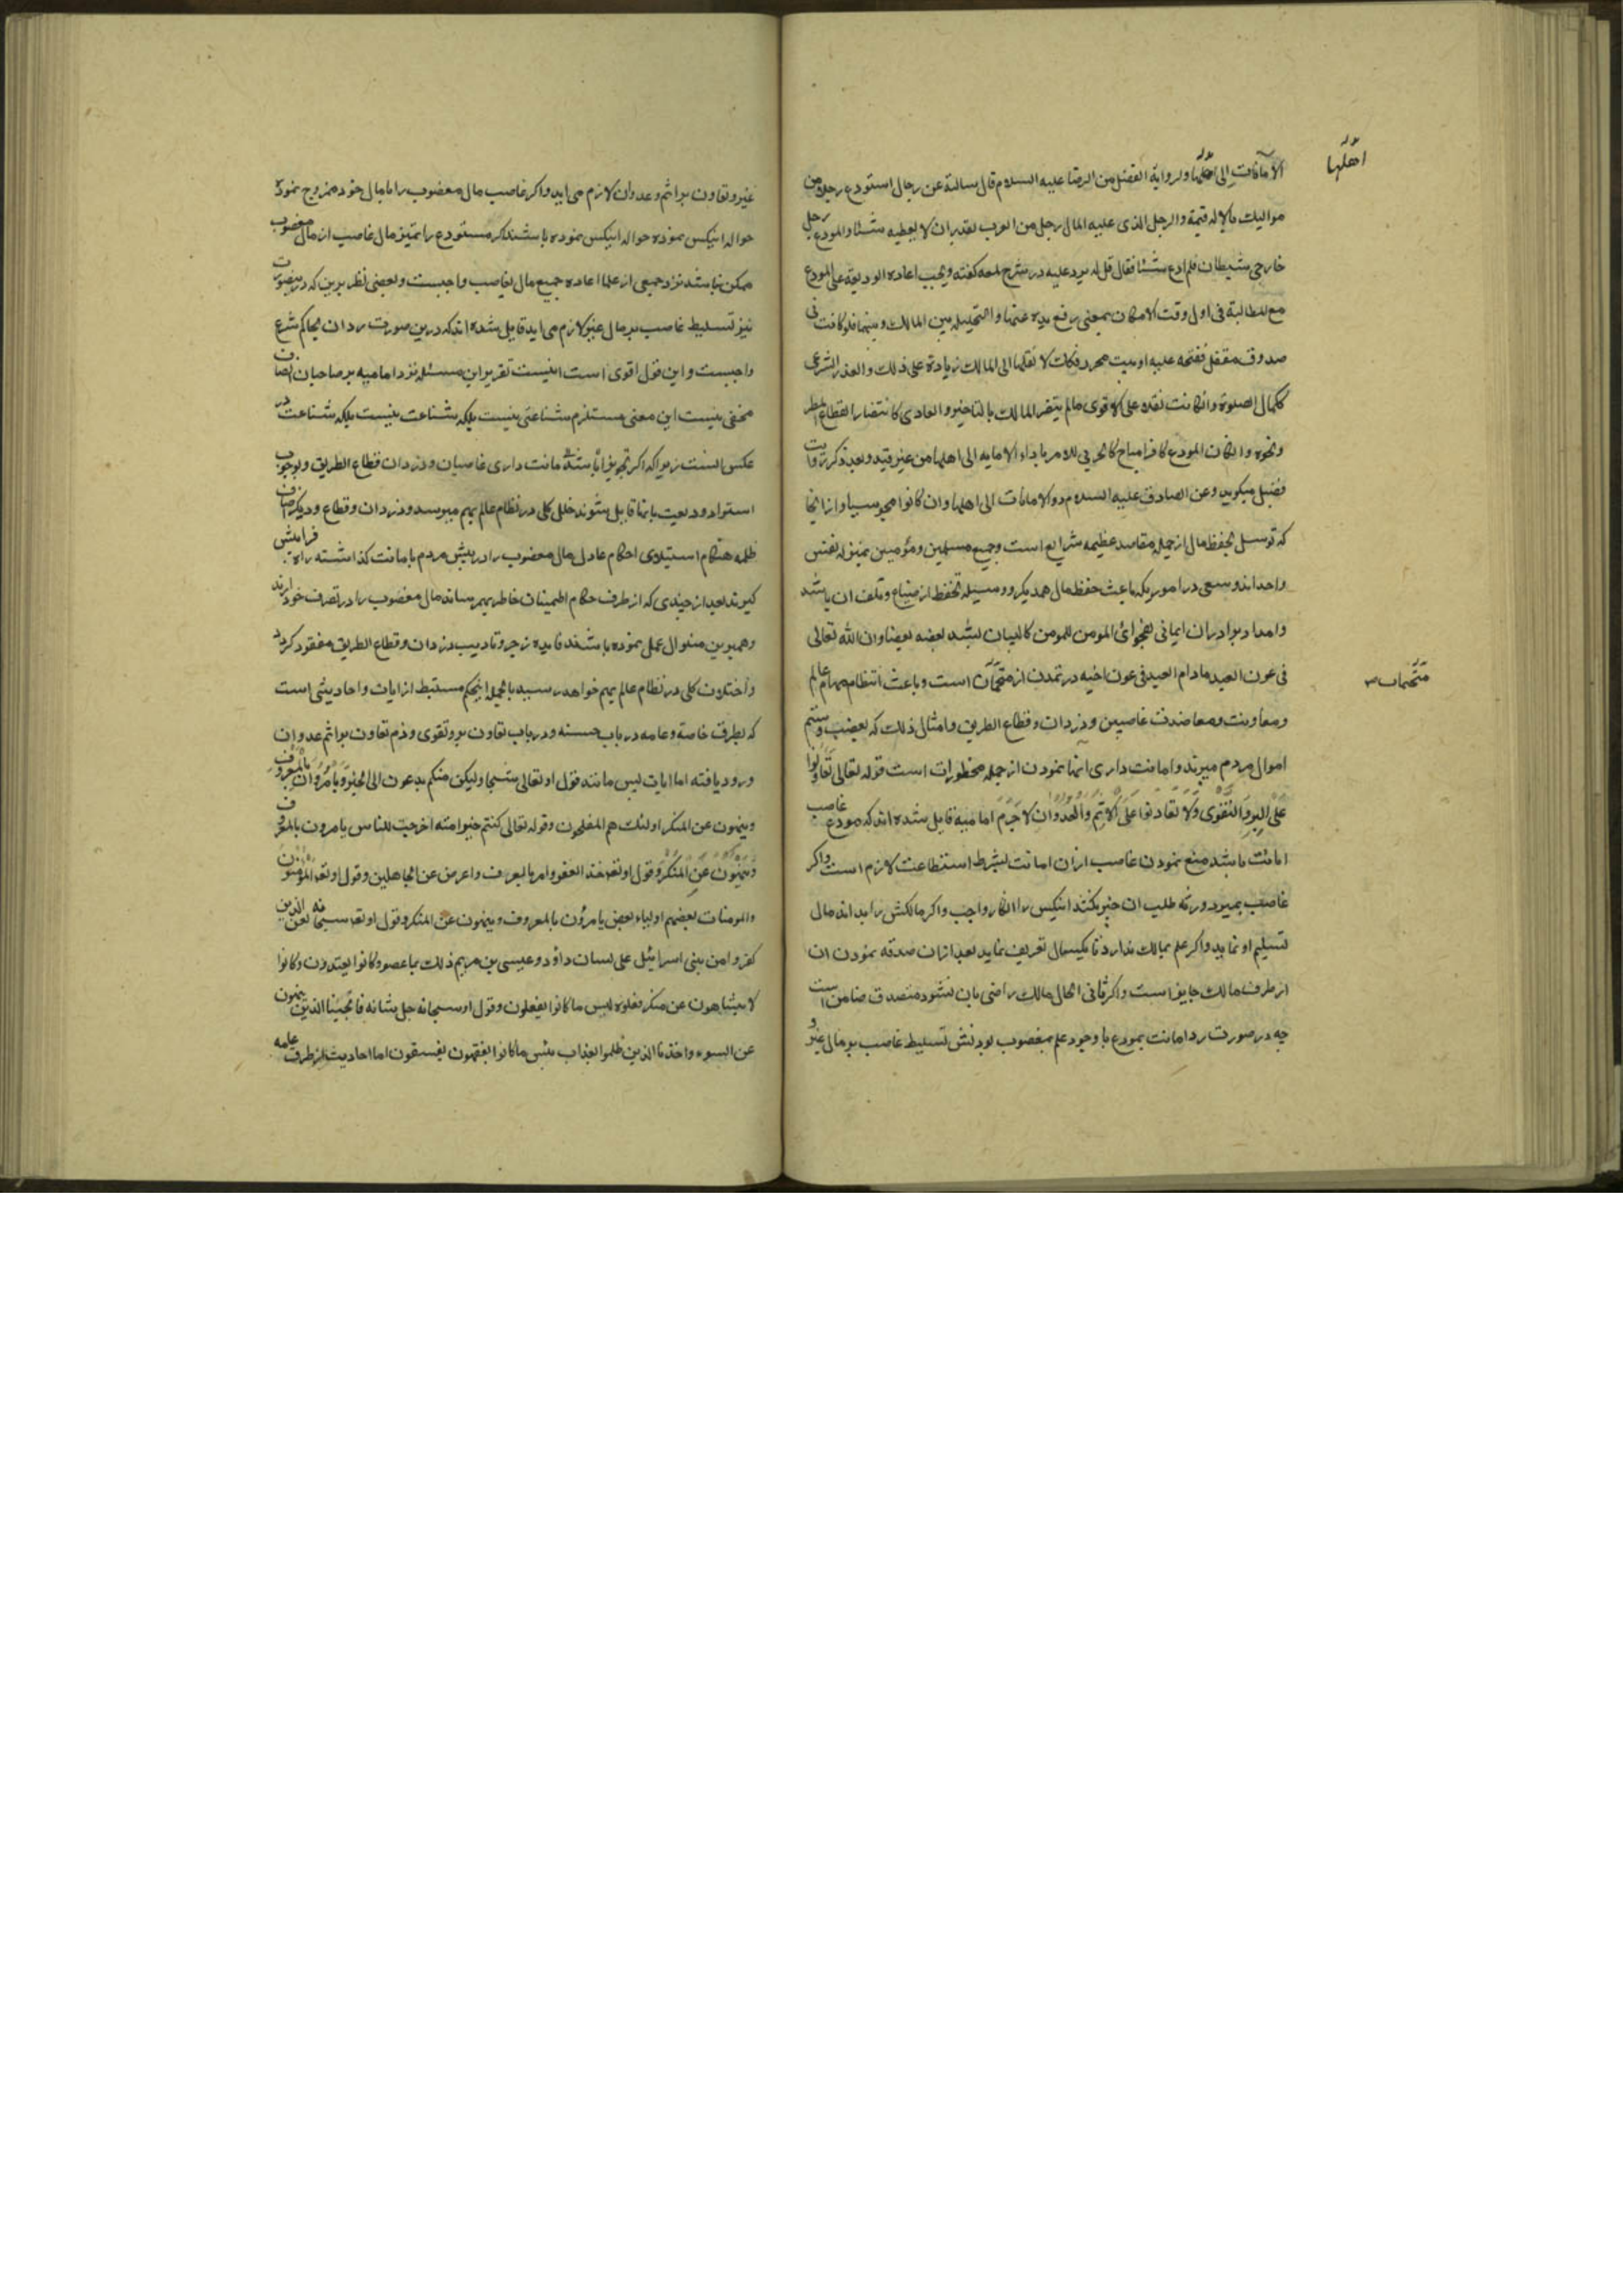 الأمانات إلى أهلها ولرواية الفضيل من الرضا عليه السلام قال سالته عن رجال استودع رجلا من
اهلها
مواليك مالا له قيمة والرجل الذى عليه المال رجل من العرب يقدر ان لا يعطيه شيئا والمودع رجل
خارجى شيطان فلم ادع شيئا فقال قل له يرد عليه در شرح لمعه كفته ويجب اعاده الوديعة على المودع
مع المطالبة فى اول وقت الامكان بمعنى رفع يده عنها والتخليه بين المالك وبينها فلو كانت فى
صندوق مقفل ففتحه عليه او بيت محرز فكذلك لا نقلها الى المالك زيادة على ذلك والعذر الشرعى
كاكمال الصلوة وانكانت نفلا على الاقوى مالم يتضرر المالك بالتاخير والعادى كانتظار انقطاع المطر
ونحوه وانكان المودع كافرا مباح كالحربى للامر باداء الامانه الى اهلها من غير قيد وبعد ذكر روايت
فضيل ميكويد وعن الصادق عليه السلام ردوا الامانات الى اهلها وان كانوا مجوسيا وازانجا
كه توسل بحفظ مال از جمله مقاصد عظيمه شرايع است وجميع مسلمين ومؤمنين بمنزله نفس
واحد اند وسعى در اموريكه باعث حفظ مال همديكر و وسيله تحفظ از ضياع وتلف ان باشد
وامداد برادران ايمانى بفحواى المومن للمومن كالبنيان يشد بعضه بعضا وان الله تعالى
فى عون العبد مادام العبد فى عون اخيه در تمدن از متحمات است وباعث انتظام مهام عالم
متحمات
ومعاونت ومعاضدت غاصبين ودزدان وقطاع الطريق وامثال ذلك كه بغصب وستم
اموال مردم ميبرند وامانت دارى انها نمودن از جمله محظورات است قوله تعالى تعاونوا
على البر والتقوى ولا تعاونوا على الاثم والعدوان لا جرم اماميه قايل شده اند كه مودع غاصب
امانت باشد منع نمودن غاصب ازان امانت بشرط استطاعت لازم است واكر
غاصب بميرد ورثه طلب ان چيز بكنند انيكس را انكار واجب واكر مالكش را بداند مال
تسليم او نمايد واكر علم بمالك ندارد تا يكسال تعريف نمايد بعد ازان صدقه نمودن ان
از طرف مالك جايز است واكر ثانى الحال مالك راضى بان نشود متصدق ضامن است
چه در صورت رد امانت بمودع با وجود علم بمغصوب بودنش تسليط غاصب بر مال غير و
غير وتعاون بر اثم وعدوان لازم مى ايد واكر غاصب مال مغصوب را با مال خود ممزوج نموده
حواله اينكس نموده حواله اينكس نموده باشد اكر مستودع را تميز مال غاصب از مال مغصوب
ممكن نباشد نزد جميعى از علما اعاده جميع مال بغاصب واجبست وبعضى نظر برين كه درينصورت
نيز تسليط غاصب بر مال غير لازم مى ايد قايل شده اند كه درين صورت رد ان بحاكم شرع
واجبست واين قول اقوى است اينست تقرير اين مسئله نزد اماميه بر صاحبان انصاف
مخفى نيست اين معنى مستلزم شناعتى نيست بلكه شناعت نيست بلكه شناعت در
عكس انست زيرا كه اكر تجويز امانت دارى غاصبان ودزدان قطاع الطريق وبوجوب
استرداد وديعت بانها قايل شوند خللى كلى در نظام عالم بهم ميرسد ودزدان وقطاع وديكر اصناف
ظلمه هنكام استيلاى احكام عادل مال مغصوب را در پيش مردم بامانت كذاشته راه فرار پيش
كيرند بعد از چندى كه از طرف حكام اطمينان خاطر بهم رساند مال مغصوب را در تصرف خود ارند
وهم برين منوال عمل نموده باشند فايده زجر وتاديب دزدان وقطاع الطريق مفقود كردد
واختلال كلى در نظام عالم بهم خواهد رسيد بالجمله اينحكم مستنبط از ايات واحاديثى است
كه بطرق خاصة وعامه در باب حسنه ودر باب تعاون بر وتقوى وذم تعاون بر اثم عدوان
ورود يافته اما ايات پس مانند قول او تعالى سبحا وليكن منكم يدعون الى الخير ويامرون بالمعروف
وينهون عن المنكر اولئك هم المفلحون وقوله تعالى كنتم خير امة اخرجت للناس يامرون بالمعروف
وينهون عن المنكر وقول او تعه خذ العفو وامر بالعرف واعرض عن الجاهلين وقول او تعه المؤمنون
والمومنات بعضهم اولياء بعض يامرون بالمعروف وينهون عن المنكر وقول او تعه سبحانه لعن الذين
كفروا من بنى اسرائيل على لسان داؤد وعيسى بن مريم ذلك بما عصو وكانوا يعتدون وكانوا
لا يتناهون عن منكر فعلوه لبس ما كانوا يفعلون وقول او سبحانه جل شانه فانجينا الذين ينهون
عن السوء واخذنا الذين ظلموا بعذاب بئس ما كانوا يفقهون يفسقون اما احاديث از طرف عامه